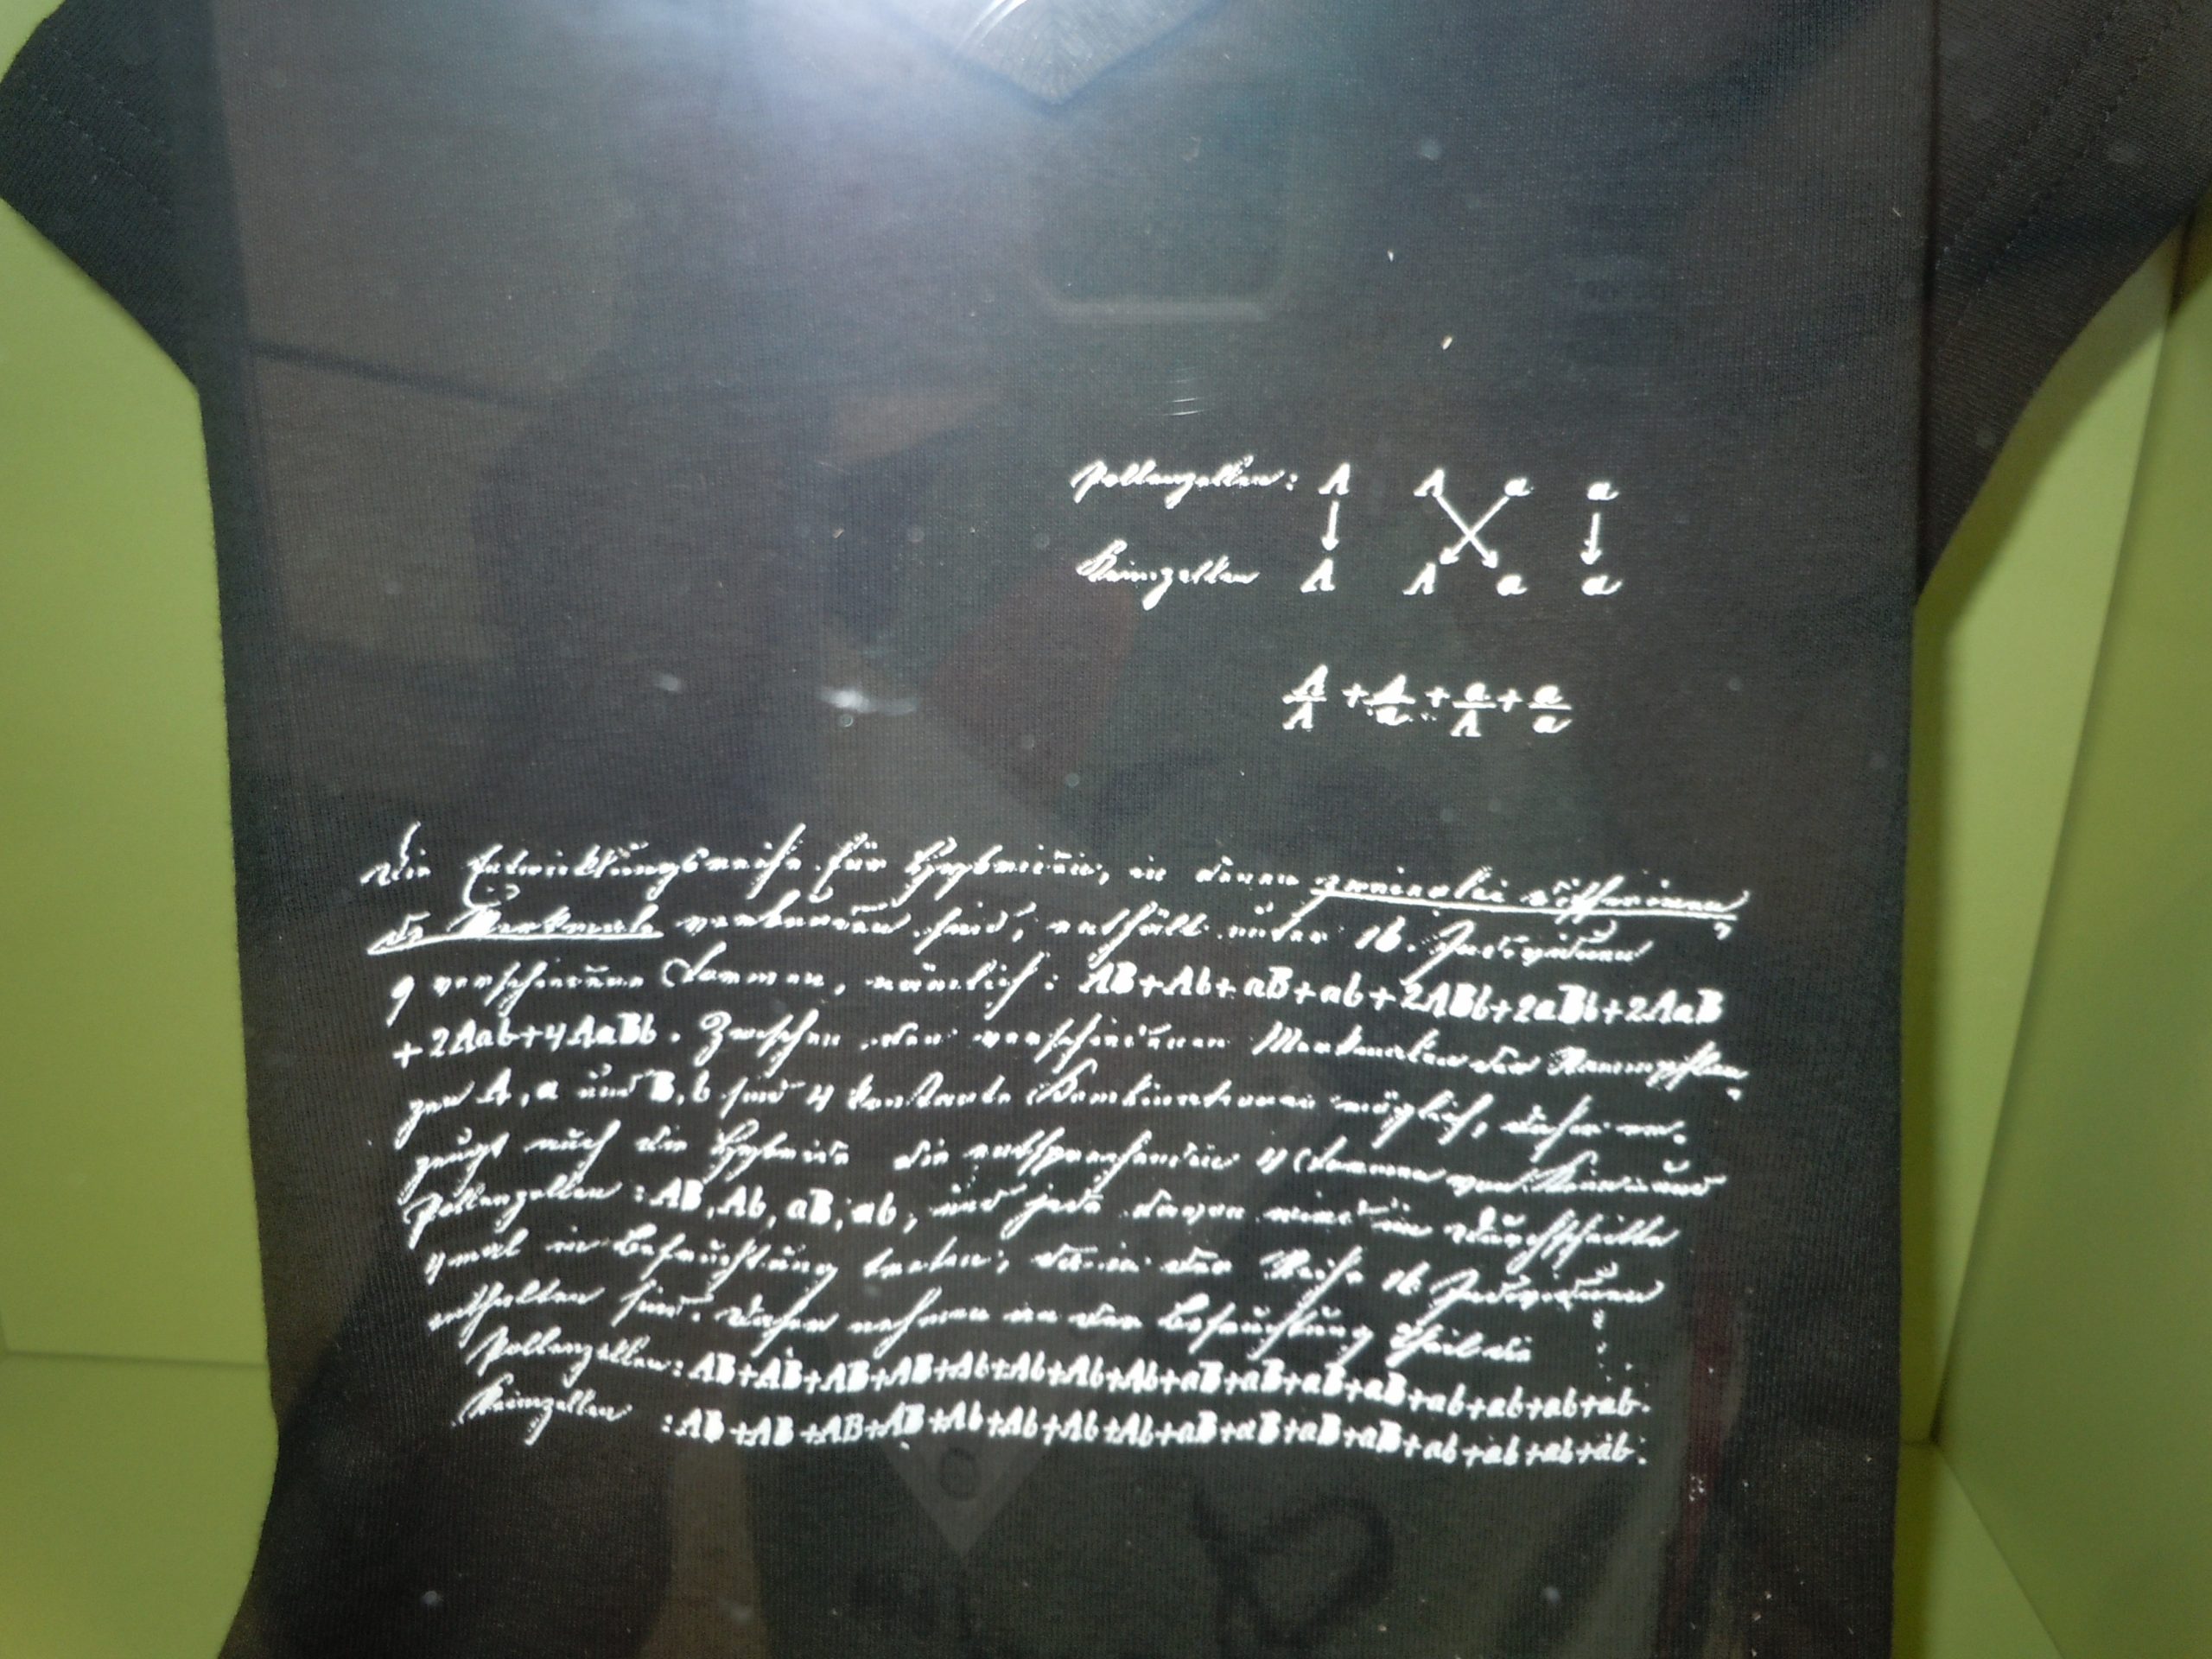 Pollenzellen: A A a a
Keimzellen A A a a
A/A + A/a + a/A + a/a
Die Entwicklungsreihe für Hybriden, in denen zweierlei differiren
de Merkmale verbunden sind, enthält unter 16 Individuen
9 verschiedene Formen, nämlich: AB+Ab+aB+ab+2ABb+2aBb+2AaB
+2Aab+4AaBb. Zwischen den verschiedenen Merkmalen der Stammpflan
zen A, a und B, b sind 4 constante Combinationen möglich, daher er-
zeugt auch die Hybride die entsprechenden 4 Formen von Keim- und
Pollenzellen: AB, Ab, aB, ab, und jede davon wird im Durchschnitte
4mal in Befruchtung treten, da in der Reihe 16 Individuen
enthalten sind. Daher nehmen an der Befruchtung Theil die
Pollenzellen: AB+AB+AB+AB+Ab+Ab+Ab+Ab+aB+aB+aB+aB+ab+ab+ab+ab.
Keimzellen : AB+AB+AB+AB+Ab+Ab+Ab+Ab+aB+aB+aB+aB+ab+ab+ab+ab.